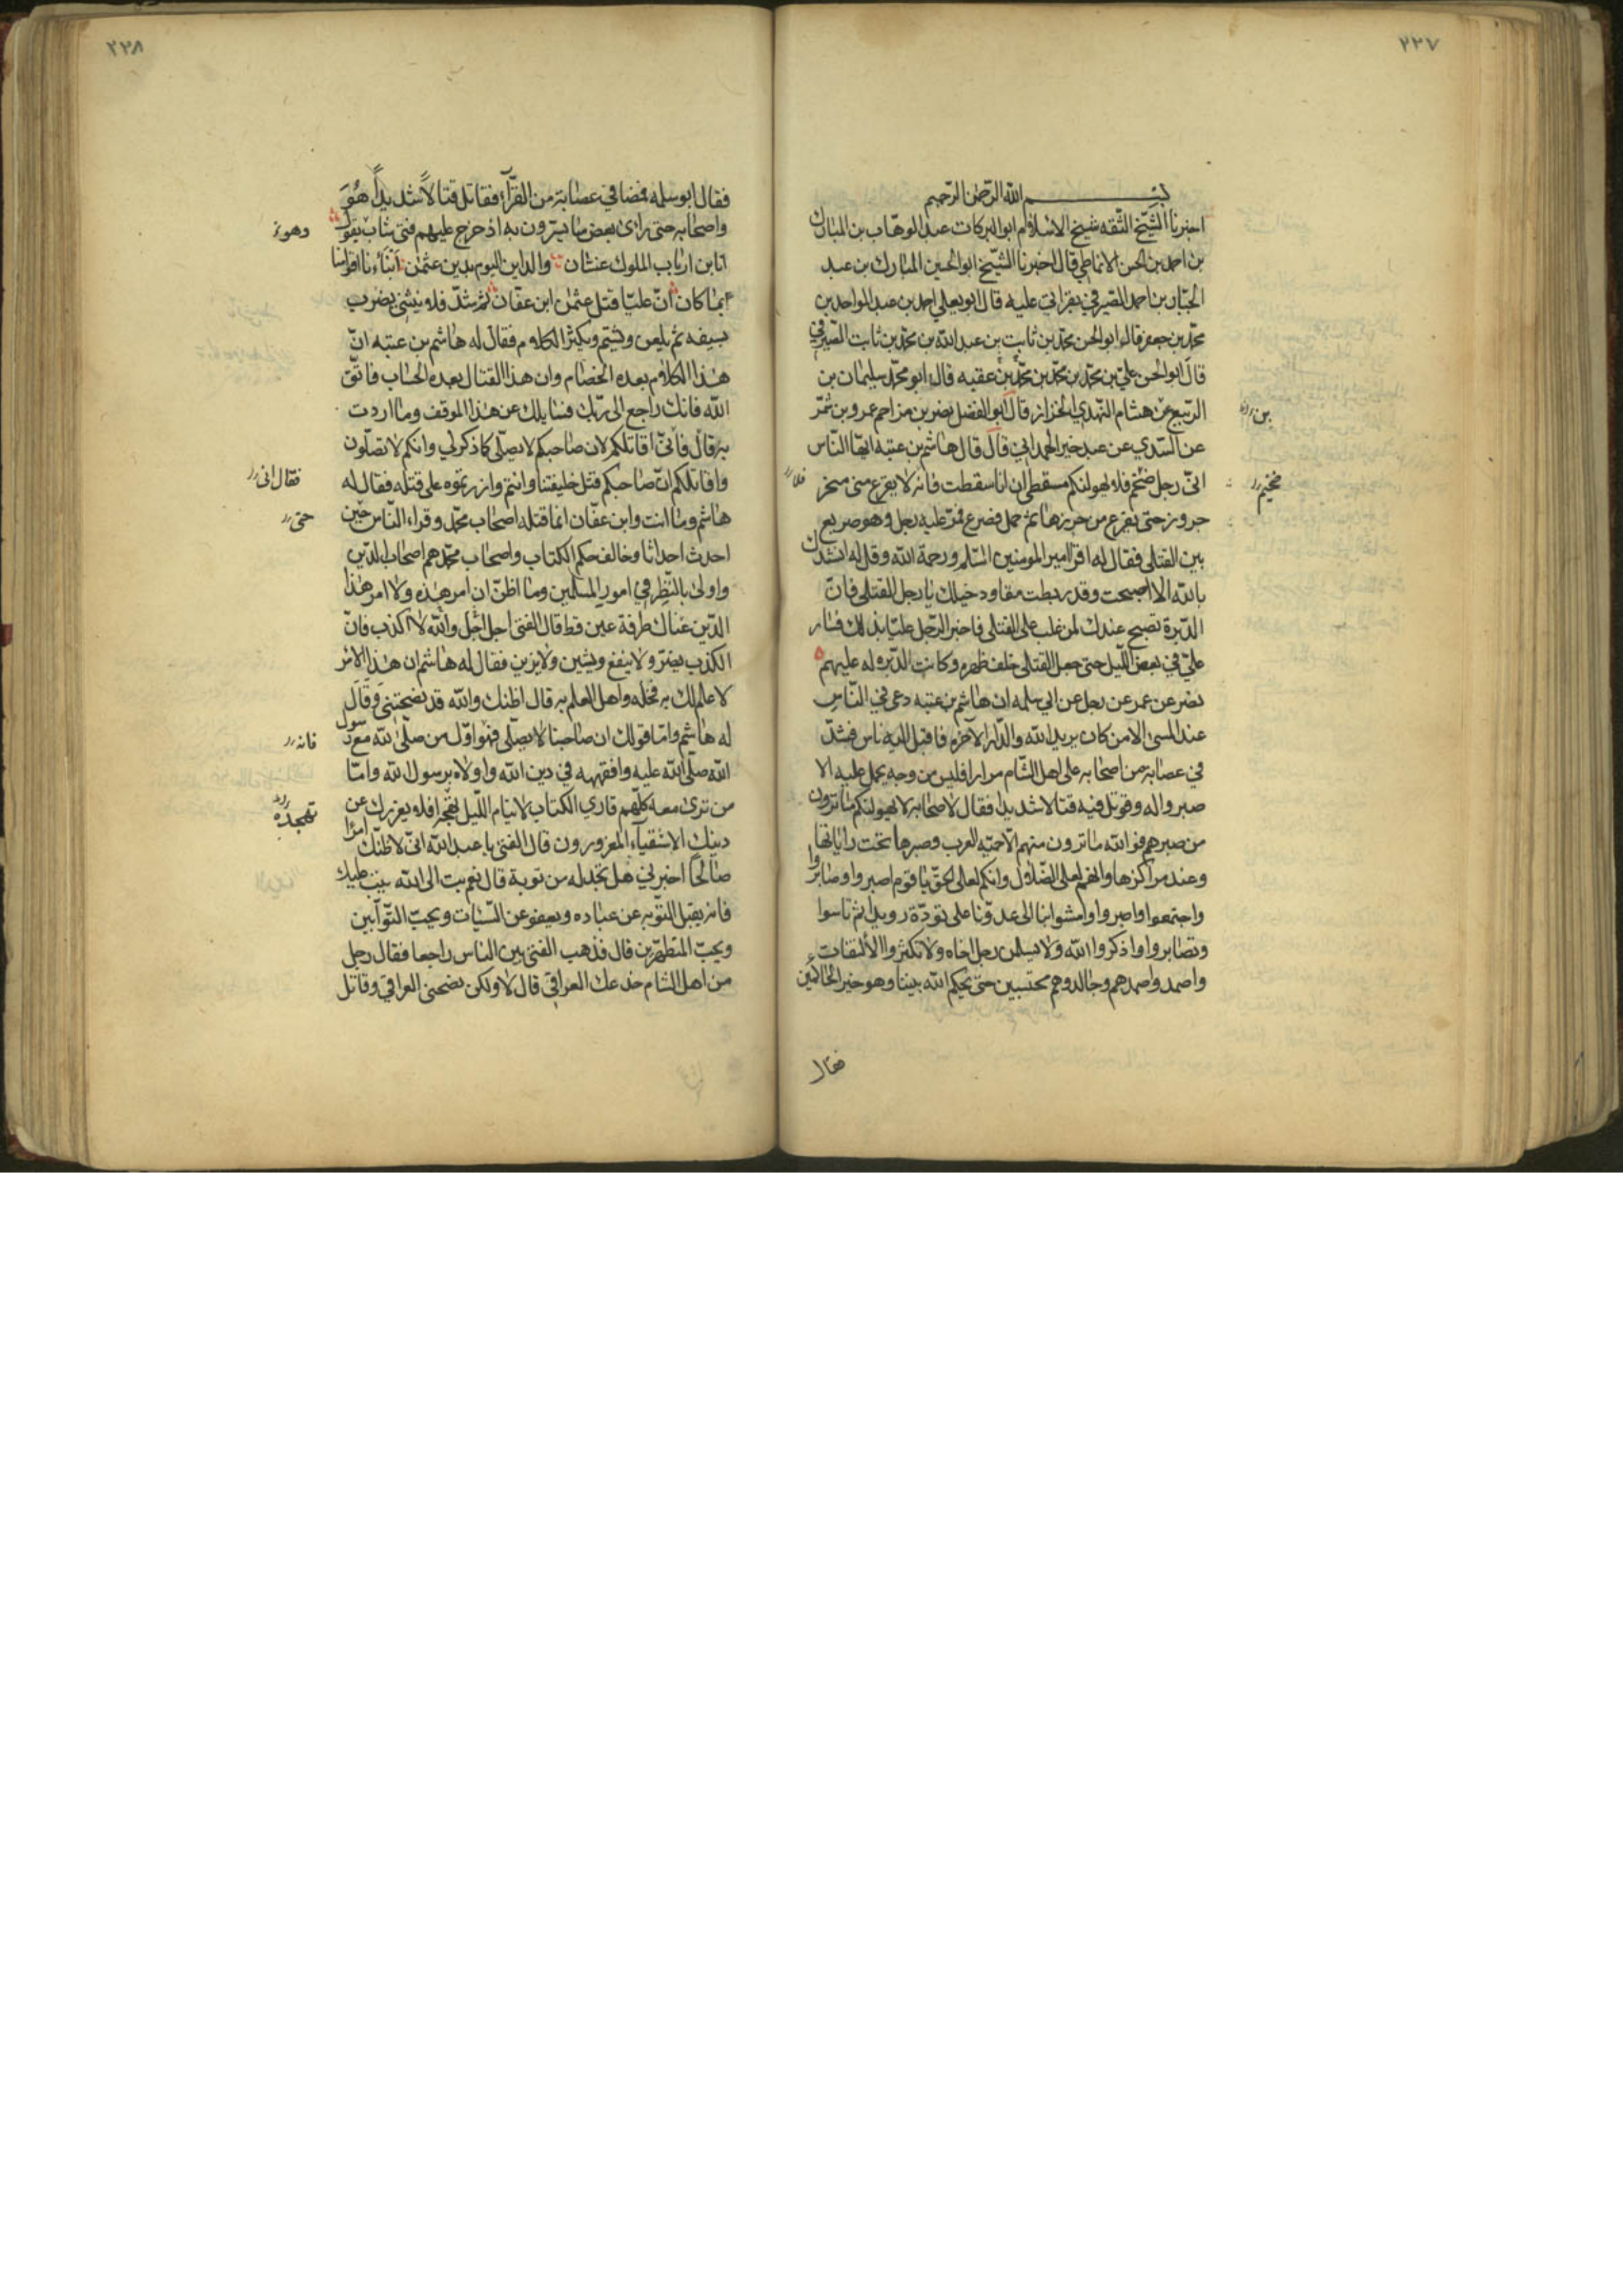 ٢٢٧
بسم الله الرحمن الرحيم
اخبرنا الشيخ الثقه شيخ الاسلام ابوالبركات عبد الوهاب بن المبارك
بن احمد بن الحسن الانماطي قال اخبرنا الشيخ ابوالحسين المبارك بن عبد
الجبار بن احمد الصيرفي بقراتي عليه قال ابو يعلي احمد بن عبد الواحد بن
محمد بن جعفر قال ابوالحسن محمد بن ثابت بن عبد الله بن محمد بن ثابت الصيرفي
قال ابوالحسن علي بن محمد بن محمد بن محمد بن عقبه قال ابو محمد سليمان بن
الربيع عن هشام النهدي الخزاز قال ابوالفضل نصر بن مزاحم عمرو بن شمر
بن
عن السدي عن عبد خير الهمداني قال قال هاشم بن عتبه ايها الناس
اني رجل ضخم فلا يهولنكم مسقطي ان انا سقطت فانه لا يفرغ مني منحر
جزور حتى يفرغ من جزرها ثم حمل فصرع فمر عليه رجل وهو صريع
بين القتلى فقال له اقرا امير المومنين السلم ورحمة الله وقل له انشدك
بالله الا اصبحت وقد ربطت مقاود خيلك يا رجل القتلى فان
الدبرة تصبح عندك لمن غلب على القتلى فاخبر الرجل عليا بذلك فسار
علي في بعض الليل حتى جعل القتلى خلف ظهره وكانت الدبره له عليهم
نصر عن عمر عن رجل عن ابي سلمه ان هاشم بن عتبه دعى في الناس
عند المسى الا من كان يريد الله والدار الآخره فاقبل اليه ناس فشد
في عصابة من اصحابه على اهل الشام مرارا فليس من وجه يحمل عليه الا
صبروا له وقوتل فيه قتالا شديدا فقال لاصحابه لا يهولنكم ما ترون
من صبرهم فوالله ما ترون منهم الا حميه العرب وصبرها تحت راياتها
وعند مراكزها وانهم لعلى الضلال وانكم لعلى الحق يا قوم اصبروا وصابروا
واجتمعوا واصبروا وامشوا بنا الى عدونا على تؤدة رويدا ثم تاسوا
وتصابروا واذكروا الله ولا يسلمن رجل اخاه ولا تكثروا الألتفات
واصمدوا صمدهم وجالدوهم محتسبين حتى يحكم الله بيننا وهو خير الحاكمين
فقال
٢٢٨
فقال ابو سلمه فمضا في عصابة من القرآء فقاتل قتالاً شديداً هُوَ
واصحابه حتى رأى بعض ما يسترون به اذ خرج عليهم فتى شاب يقول
وهو
انا بن ارباب الملوك غسان والداين اليوم بدين عثمن انبأنا اقوامنا
بما كان ان عليا قتل عثمن ابن عفان ثم شد فلا ينثني يضرب
بسيفه ثم يلعن ويشتم ويكثر الكلام فقال له هاشم بن عتبه ان
هذا الكلام بعده الخصام وان هذا القتال بعده الحساب فاتق
الله فانك راجع الى ربك فسايلك عن هذا الموقف وما اردت
به قال فاني اقاتلكم لان صاحبكم لا يصلي كما ذكر لي وانكم لا تصلون
واقاتلكم ان صاحبكم قتل خليفتنا وانتم وازرتموه على قتله فقال له
فقال انى
هاشم وما انت وابن عفان انما قتله اصحاب محمد وقراء الناس حين
حتى
احدث احداثا وخالف حكم الكتاب واصحاب محمد هم اصحاب الدين
واولى بالنظر في امور المسلمين وما اظن ان امر هذه ولا امر هذا
الدين عناك طرفة عين قط قال الفتى اجل اجل والله لا اكذب فان
الكذب يضر ولا ينفع ويشين ولا يزين فقال له هاشم ان هذا الامر
لا علم لك به فخله واهل العلم به قال اظنك والله قد نصحتني وقال
له هاشم واما قولك ان صاحبنا لا يصلي فهو اول من صلى لله مع رسول
فانه
الله صلى الله عليه وافقهه في دين الله واولاه برسول الله واما
من ترى معه كلهم قاري الكتاب لا ينام الليل تهجرا فلا يغررك عن
تهجدا
دينك الاشقيآء المغرورون قال الفتى يا عبد الله اني لاظنك امرا
صالحا اخبرني هل تجد له من توبة قال نعم تب الى الله يتب عليك
فانه يقبل التوبه عن عباده ويعفو عن السيئات ويحب التوآبين
ويحب المتطهرين قال فذهب الفتى بين الناس راجعا فقال رجل
من اهل الشام خدعك العراقي قال لا ولكن نصحني العراقي وقاتل